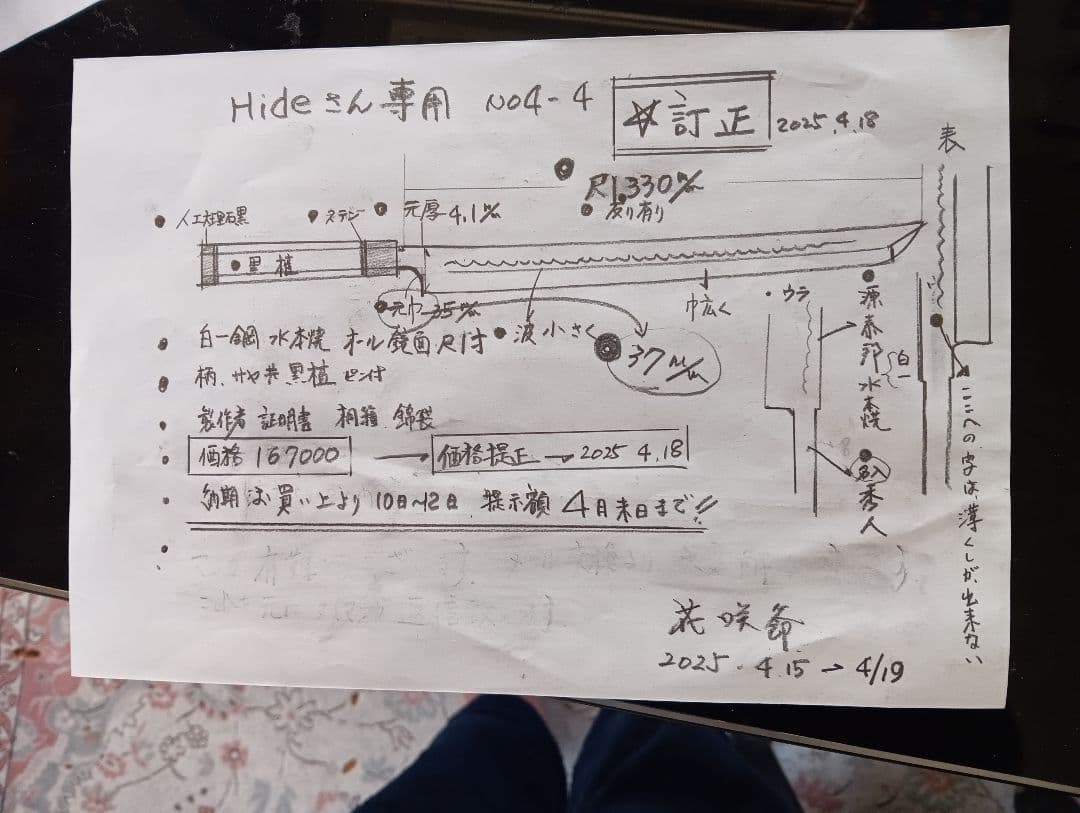 Hideさん専用 NO4-4
☆訂正
2025.4.18
表
尺1.330m/m
反り有り
人工大理石黒
ステン
元厚4.1m/m
黒檀
元巾 35m/m
波小さく
巾広く
37m/m
・ウラ
源泰
水本焼
白一
秀人
ここへの字は薄くしか出来ない
白一鋼 水本焼 オール鏡面尺1寸
柄、サヤ共黒檀 ピン付
製作者 証明書 桐箱 錦袋
価格 167000
価格提正→2025 4.18
納期 お買い上より10日〜12日 提示額 4月末日まで!!
花咲
2025.4.15→4/19